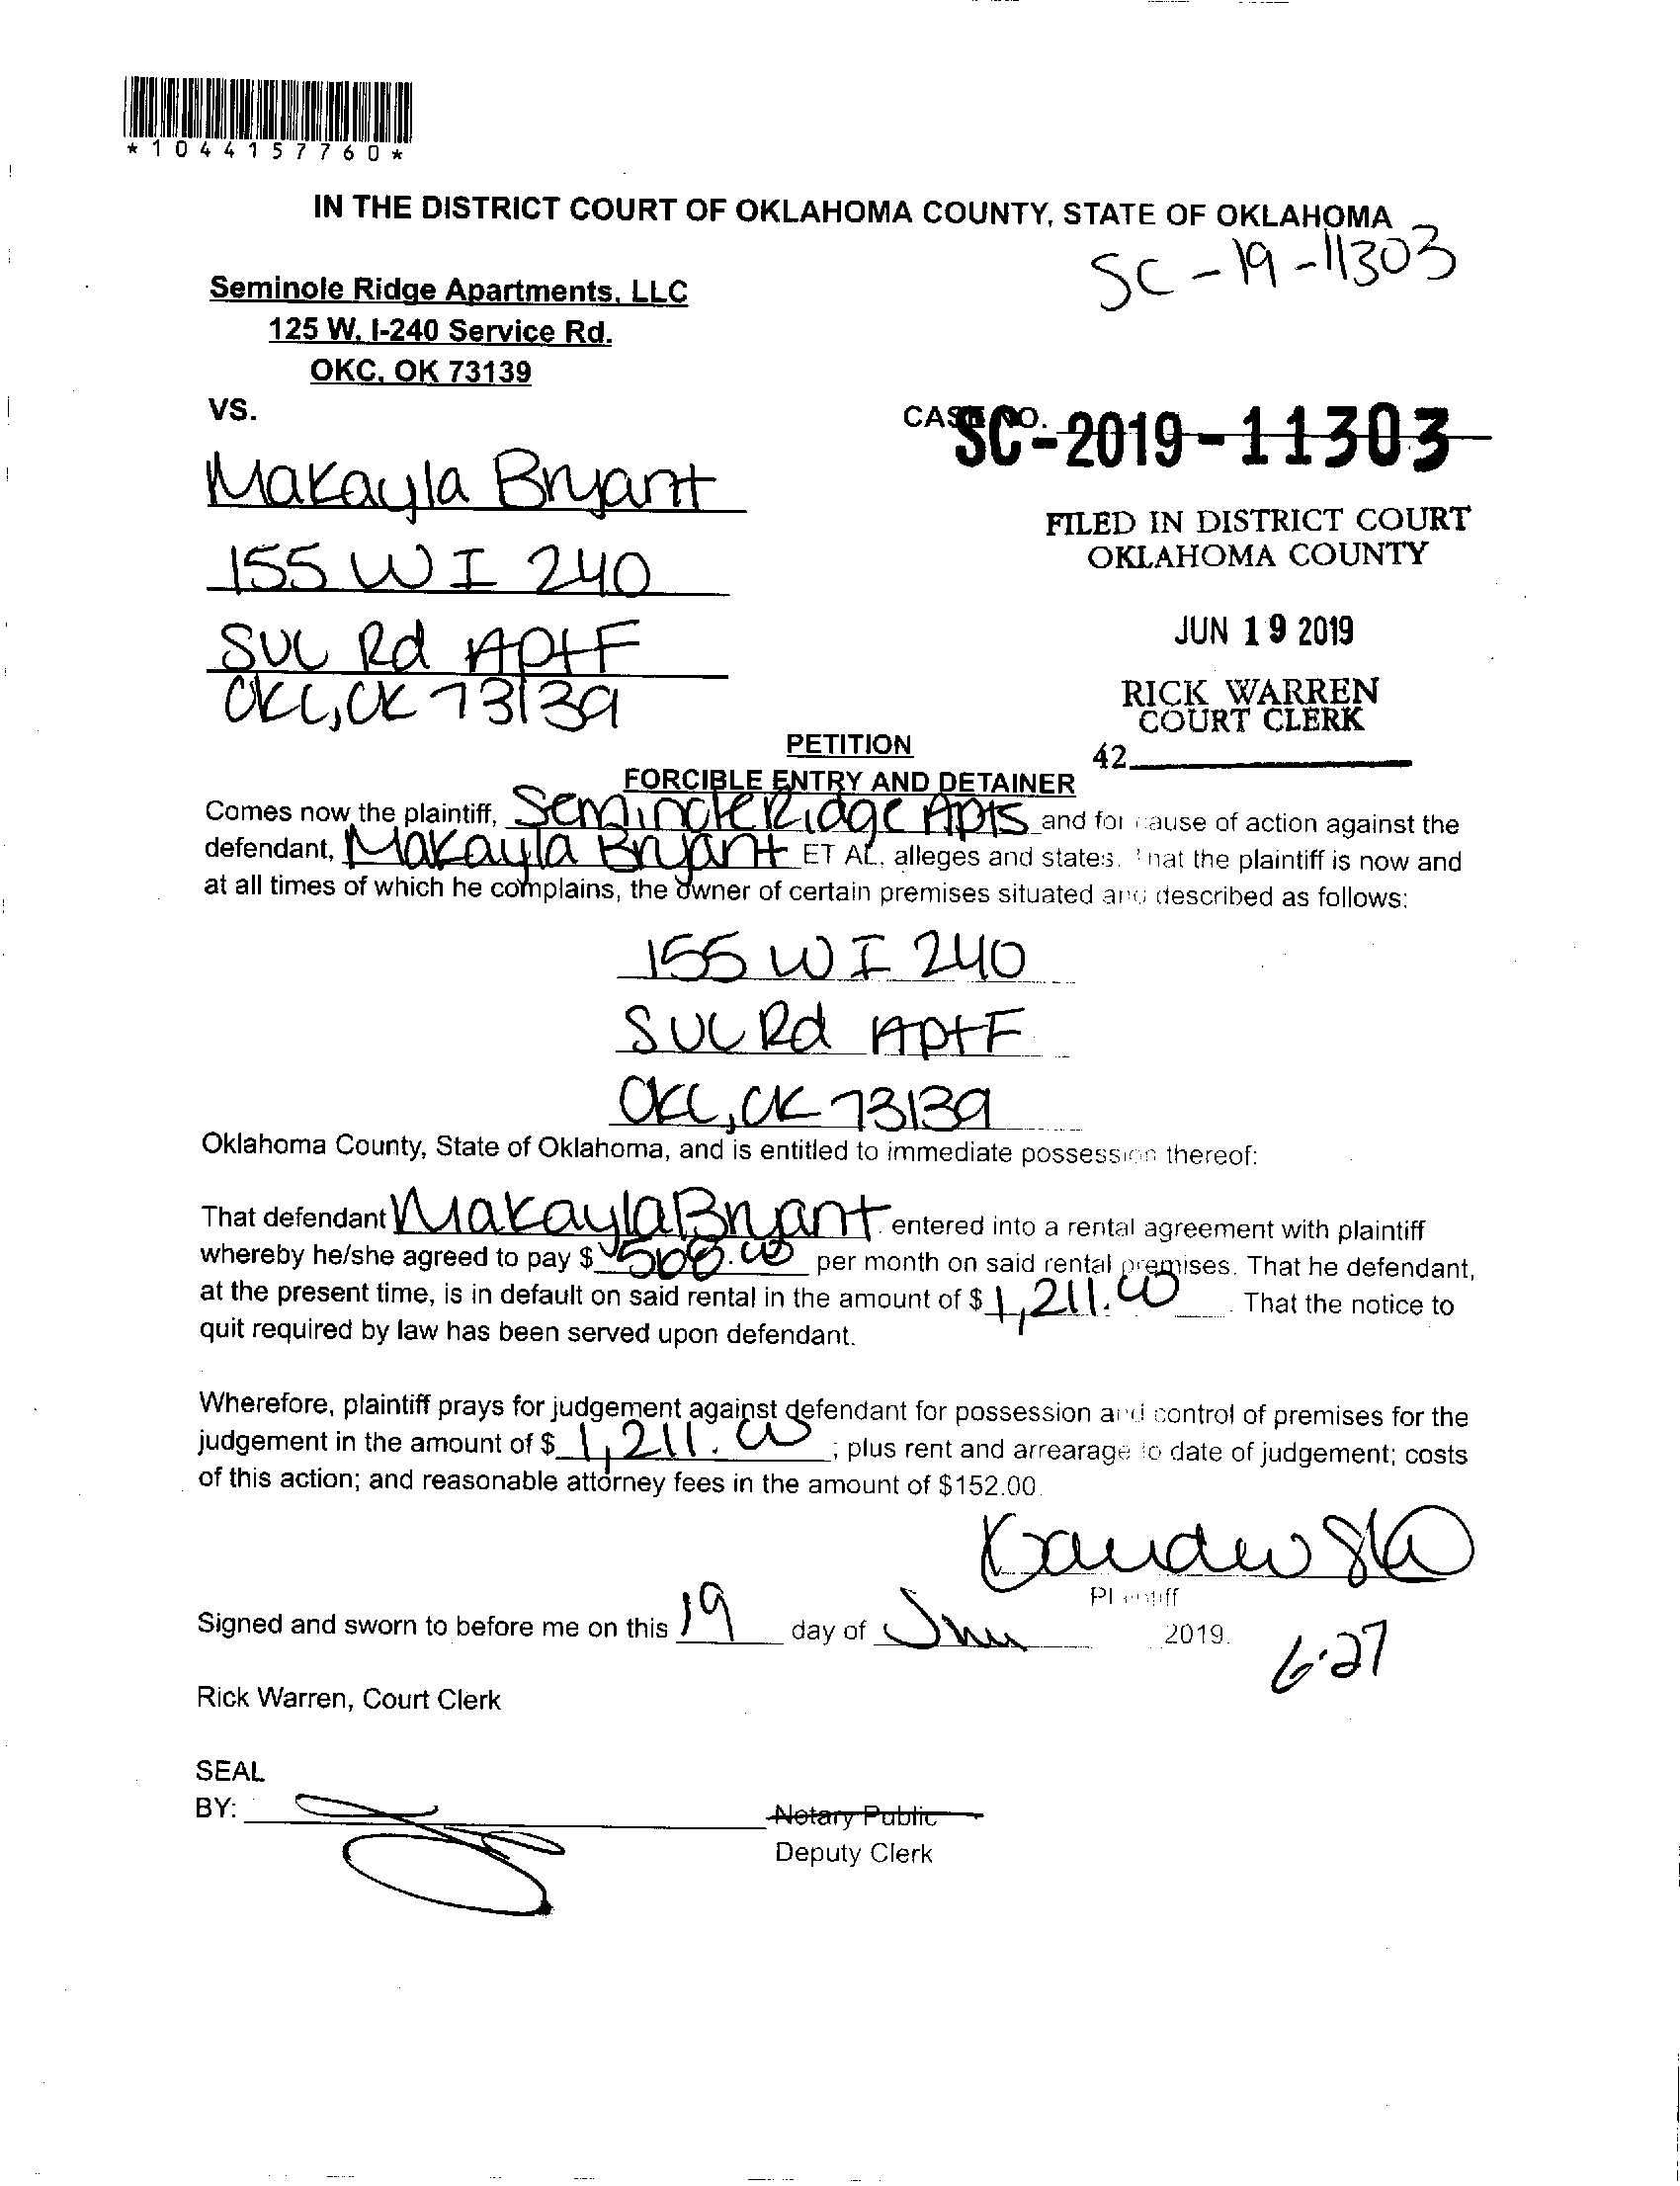 *1044157760*
IN THE DISTRICT COURT OF OKLAHOMA COUNTY, STATE OF OKLAHOMA
SC-19-11303
Seminole Ridge Apartments, LLC
125 W. I-240 Service Rd.
OKC, OK 73139
VS.
CASE NO.
SC-2019-11303
Makayla Bryant
155 W I 240
SVC Rd Apt F
OKC, OK 73139
FILED IN DISTRICT COURT
OKLAHOMA COUNTY
JUN 19 2019
RICK WARREN
COURT CLERK
42
PETITION
FORCIBLE ENTRY AND DETAINER
Comes now the plaintiff, Seminole Ridge Apts and for cause of action against the
defendant, Makayla Bryant ET AL, alleges and states. That the plaintiff is now and
at all times of which he complains, the owner of certain premises situated and described as follows:
155 W I 240
SVC Rd Apt F
OKC, OK 73139
Oklahoma County, State of Oklahoma, and is entitled to immediate possession thereof:
That defendant Makayla Bryant entered into a rental agreement with plaintiff
whereby he/she agreed to pay $ .00 per month on said rental premises. That he defendant,
at the present time, is in default on said rental in the amount of $ 1,211.00. That the notice to
quit required by law has been served upon defendant.
Wherefore, plaintiff prays for judgement against defendant for possession and control of premises for the
judgement in the amount of $ 1,211.00; plus rent and arrearage to date of judgement; costs
of this action; and reasonable attorney fees in the amount of $152.00.
Plaintiff
Signed and sworn to before me on this 19 day of Jun 2019.
6-27
Rick Warren, Court Clerk
SEAL
BY:
Notary Public
Deputy Clerk